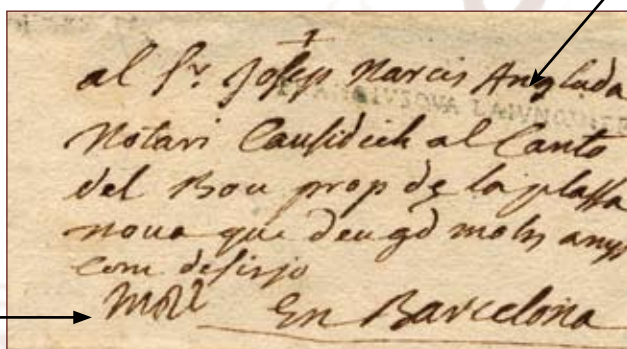 al Sr. Joseph Narcis Anglada
Notari Causidich al Canto
del Bou prop de la plassa
noua que deu gd molts anys
com desitjo
En Barcelona